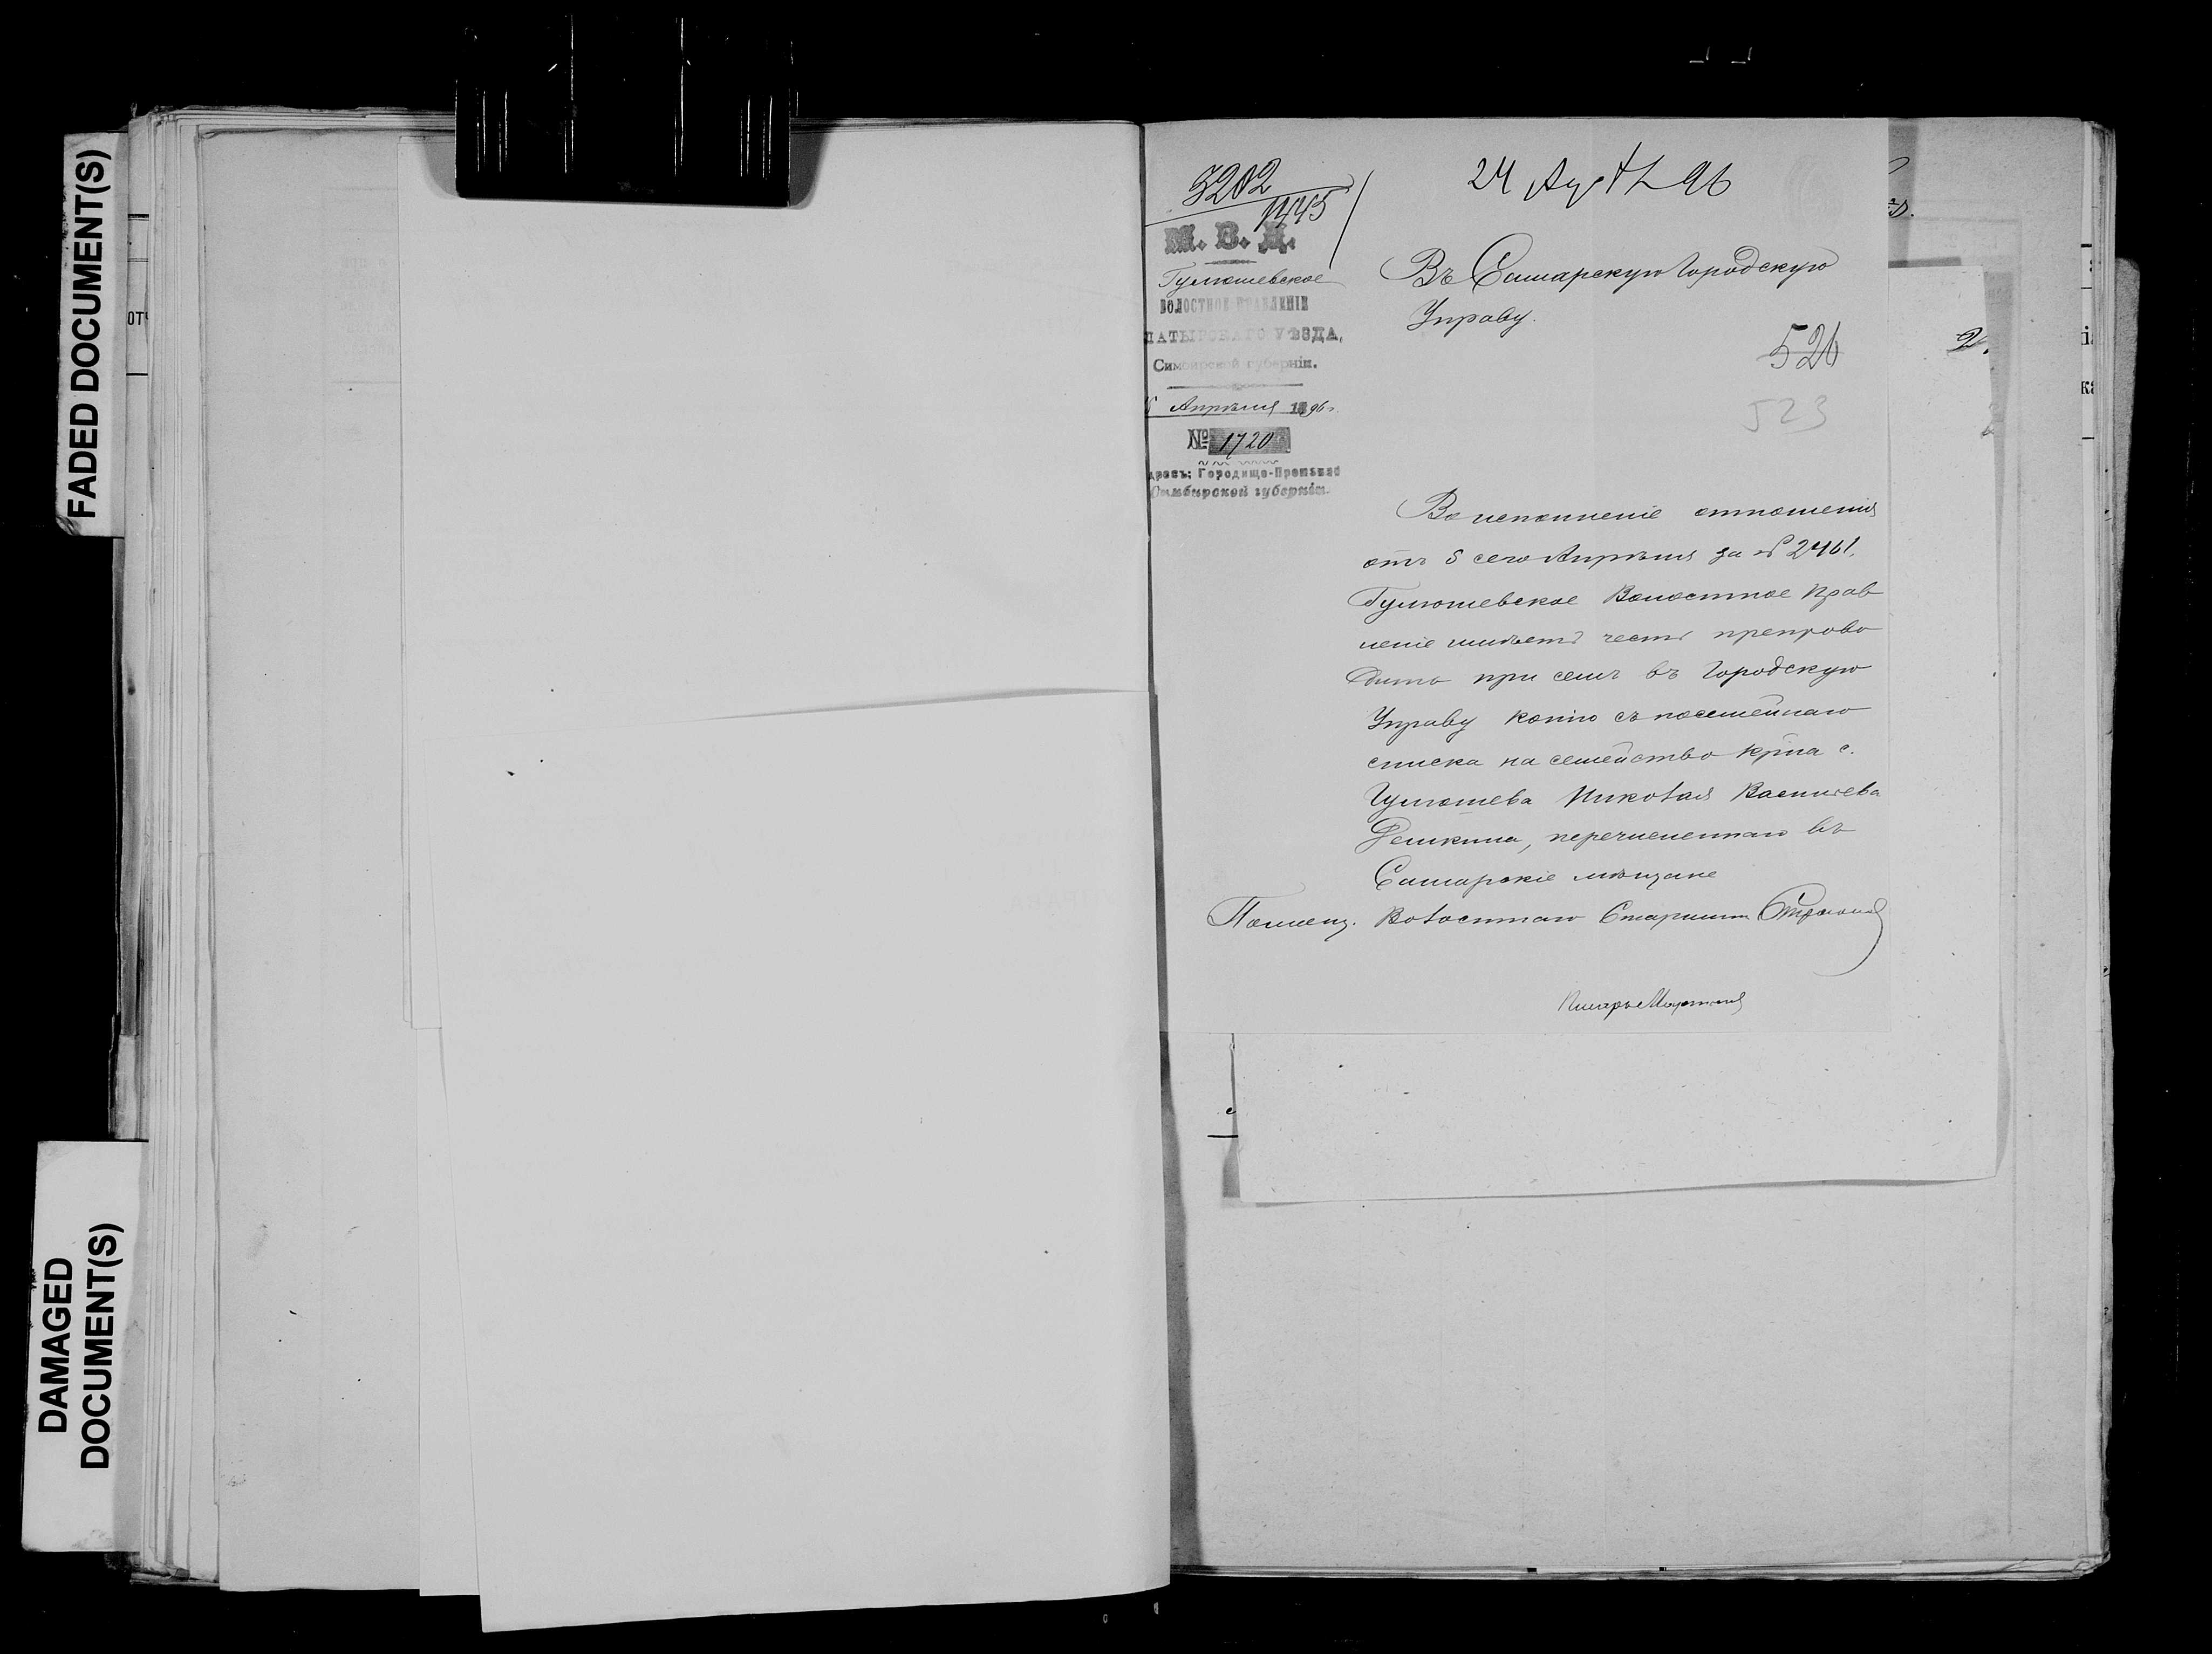 FADED DOCUMENT(S)
DAMAGED
DOCUMENT(S)
3202
1445
24 96
М. В. Д.
Гулюшевское
ВОЛОСТНОЕ ПРАВЛЕНІЕ
ЛАТЫРСКАГО УѢЗДА,
Симбирской губерніи.
Апрѣля 1896 г.
№ 1720
дресъ: Городище-
Симбирской губерніи.
Въ Самарскую Городскую
Управу.
526
523
Во исполненіе отношенія
отъ 5 сего Апрѣля за № 2461,
Гулюшевское Волостное Прав
леніе имѣетъ честь препрово
дить при семъ въ Городскую
Управу копію съ посемейнаго
списка на семейство кр-на с.
Гулюшева Николая Васильева
Демкина, перечисленнаго въ
Самарскіе мѣщане
Помощ. Волостнаго Старшины
Писарь